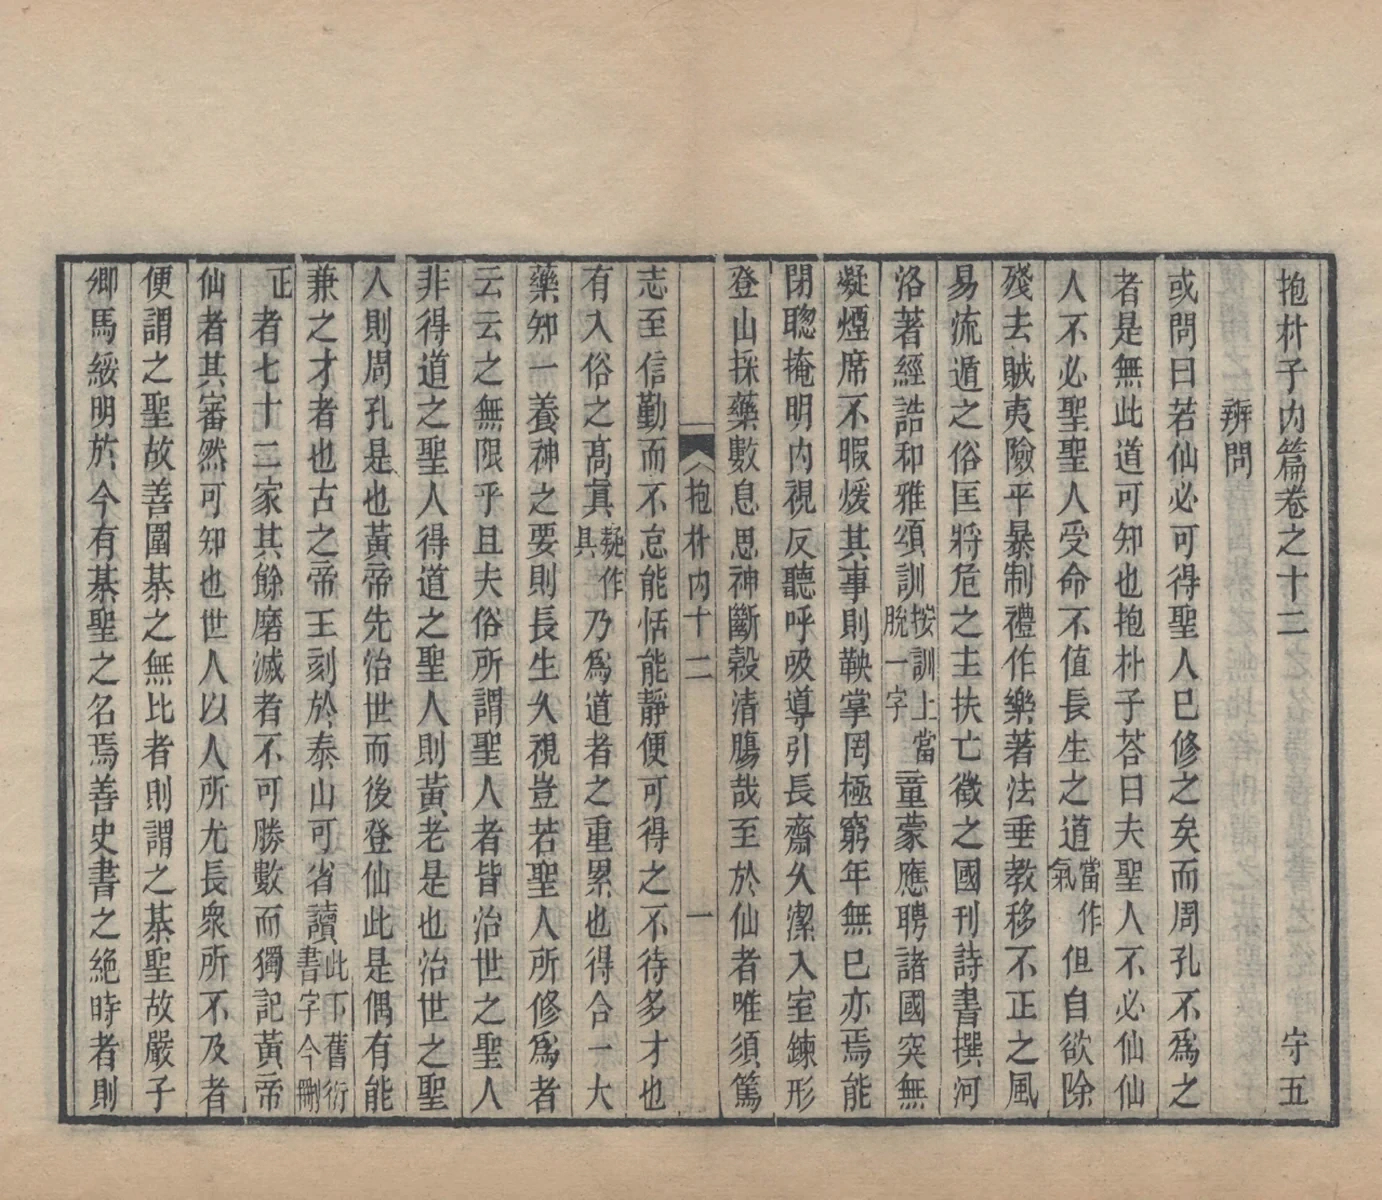 抱朴子内篇卷之十二　守五
辨問
或問曰若仙必可得聖人已修之矣而周孔不爲之
者是無此道可知也抱朴子荅曰夫聖人不必仙仙
人不必聖聖人受命不值長生之道當作氣但自欲除
殘去賊夷險平暴制禮作樂著法垂教移不正之風
易流遁之俗匡將危之主扶亡徵之國刊詩書撰河
洛著經誥和雅頌訓按訓上當脫一字童蒙應聘諸國突無
凝煙席不暇煖其事則鞅掌罔極窮年無已亦焉能
閉聰掩明内視反聽呼吸導引長齋久潔入室鍊形
登山採藥數息思神斷穀清腸哉至於仙者唯須篤
抱朴内十二　一
志至信勤而不怠能恬能靜便可得之不待多才也
有入俗之高眞疑作具乃爲道者之重累也得合一大
藥知一養神之要則長生久視豈若聖人所修爲者
云云之無限乎且夫俗所謂聖人者皆治世之聖人
非得道之聖人得道之聖人則黃老是也治世之聖
人則周孔是也黃帝先治世而後登仙此是偶有能
兼之才者也古之帝王刻於泰山可省讀此下舊衍書字今刪
正者七十二家其餘磨滅者不可勝數而獨記黃帝
仙者其審然可知也世人以人所尤長衆所不及者
便謂之聖故善圍棊之無比者則謂之棊聖故嚴子
卿馬綏明於今有棊聖之名焉善史書之絶時者則